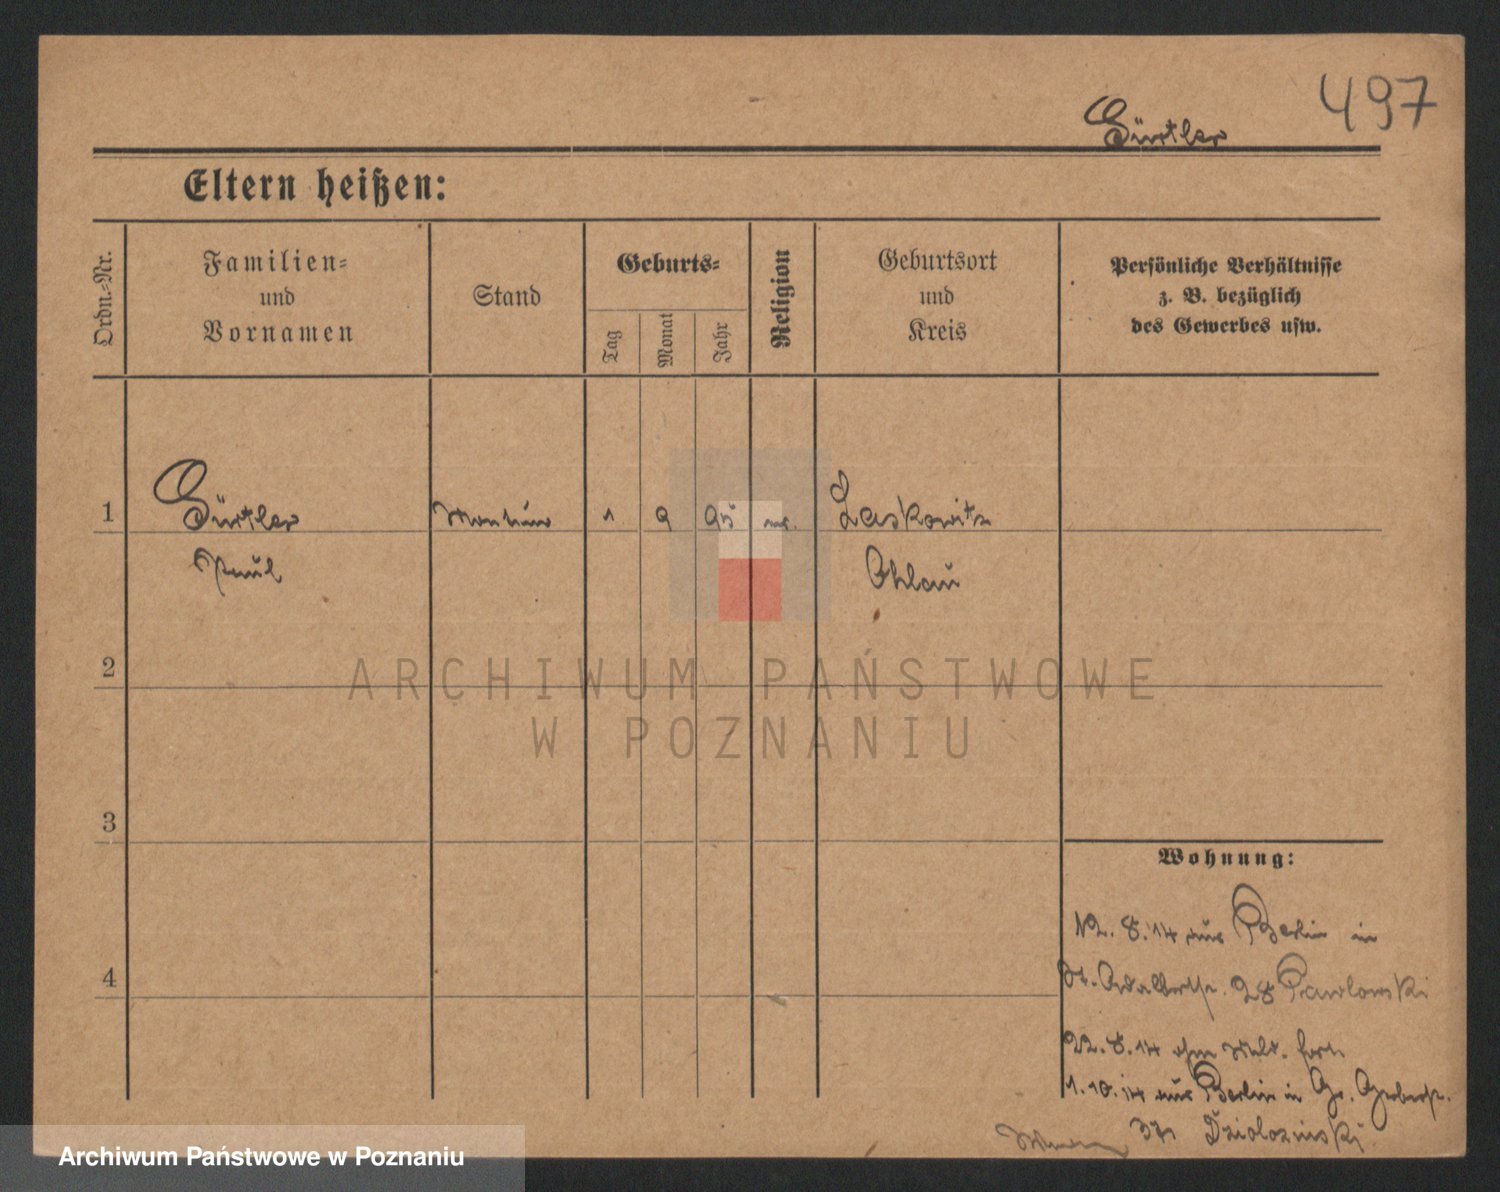 497
Gürtler
Eltern heißen:
Ordn.-Nr.
Familien-
und
Vornamen
Stand
Geburts-
Tag
Monat
Jahr
Religion
Geburtsort
und
Kreis
Persönliche Verhältnisse
z. B. bezüglich
des Gewerbes usw.
1 Gürtler 1 9 95 Laskowitz
Paul Ohlau
2
3
4
Wohnung:
12. 8. 14 aus Berlin in
St. Adalbertstr. 28 Pawlowski
22. 8. 14 ohne Meld. fort
1. 10. 14 aus Berlin in Gr. Gerberstr.
37 Dziolozinski
ARCHIWUM PAŃSTWOWE
W POZNANIU
Archiwum Państwowe w Poznaniu